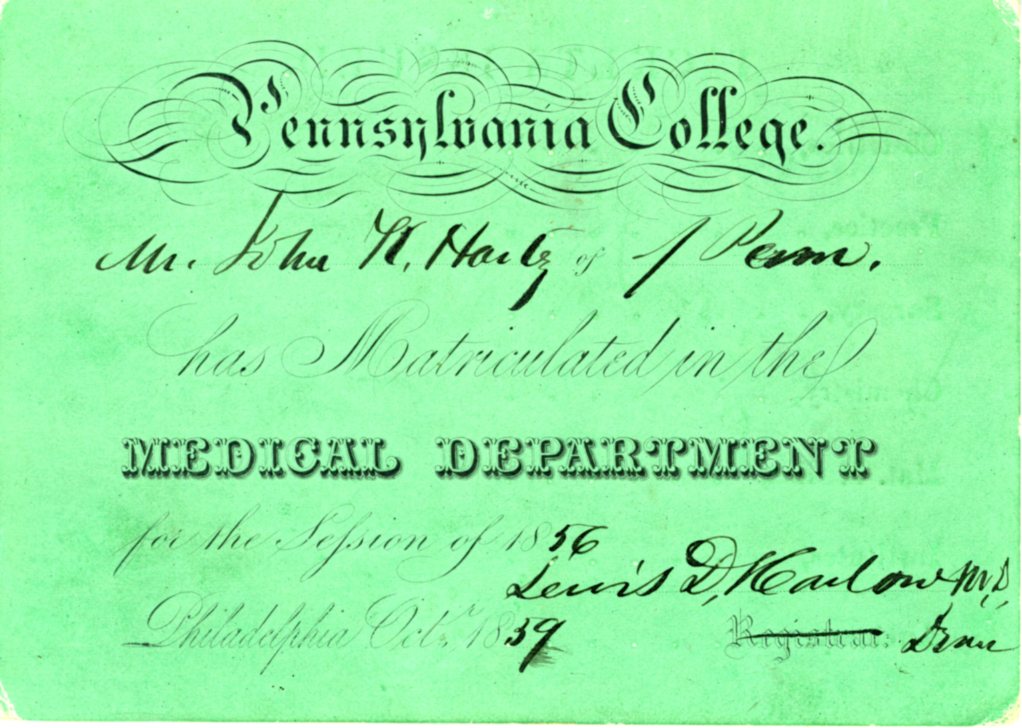 Pennsylvania College.
Mr. John of Penn.
has Matriculated in the
MEDICAL DEPARTMENT
for the Session of 1856
Lewis D. Harlow M.D.
Philadelphia Oct. 1859 Registrar. Dean